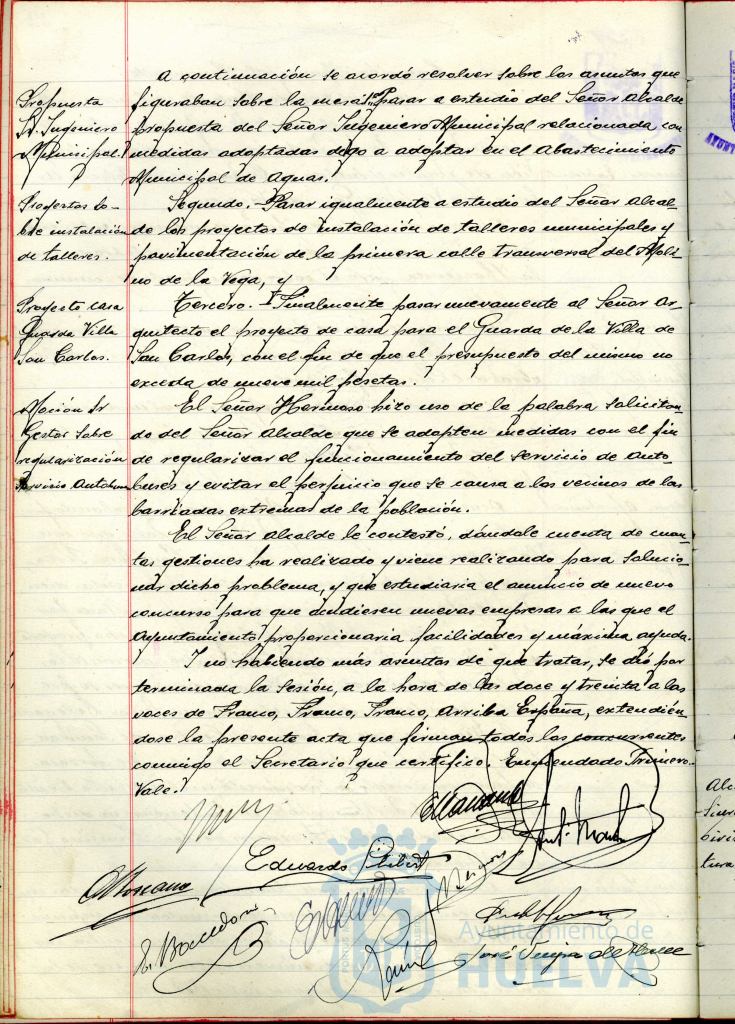 A continuación se acordó resolver sobre los asuntos que
figuraban sobre la mesa: 1º Pasar a estudio del Señor Alcalde
propuesta del Señor Ingeniero Municipal relacionada con
medidas adoptadas o a adoptar en el Abastecimiento
Municipal de Aguas.
Segundo.- Pasar igualmente a estudio del Señor Alcal-
de los proyectos de instalación de talleres municipales y
pavimentación de la primera calle transversal del Moli-
no de la Vega, y
Tercero.- Finalmente pasar nuevamente al Señor Ar-
quitecto el proyecto de casa para el Guarda de la Villa de
San Carlos, con el fin de que el presupuesto del mismo no
exceda de nueve mil pesetas.
El Señor Hermoso hizo uso de la palabra solicitan-
do del Señor Alcalde que se adopten medidas con el fin
de regularizar el funcionamiento del servicio de auto-
buses y evitar el perjuicio que se causa a los vecinos de las
barriadas extremas de la población.
El Señor Alcalde le contestó, dándole cuenta de cuan-
tas gestiones ha realizado y viene realizando para solucio-
nar dicho problema, y que estudiaria el anuncio de nuevo
concurso para que acudiesen nuevas empresas a las que el
Ayuntamiento proporcionaria facilidades y máxima ayuda.
Y no habiendo más asuntos de que tratar, se dió por
terminada la sesión, a la hora de las doce y treinta a las
voces de Franco, Franco, Franco, Arriba España, extendién-
dose la presente acta que firman todos los concurrentes
conmigo el Secretario que certifico. Enmendado Primero.
Vale.
Propuesta
Sr. Ingeniero
Municipal.
Proyectos so-
bre instalación
de talleres.
Proyecto casa
Guarda Villa
San Carlos.
Moción Sr
Gestor sobre
regularización
servicio Autobuses
Eduardo
José
Ayuntamiento de
HUELVA